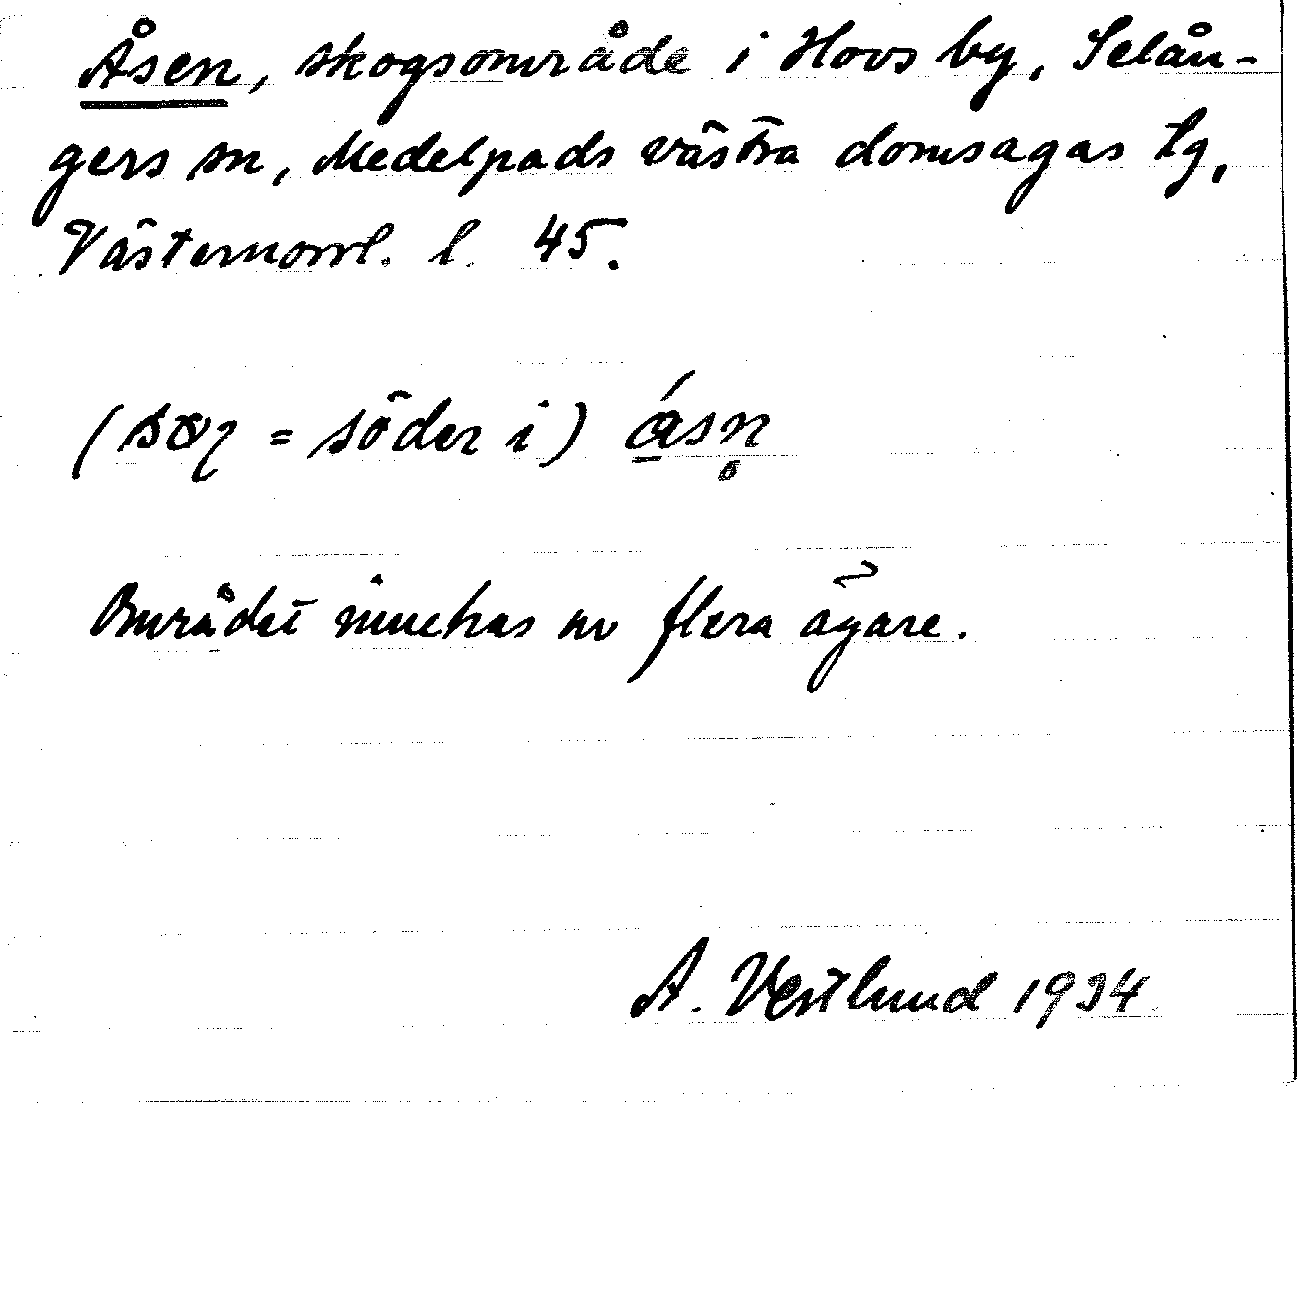 Åsen, skogsområde i Hovs by, Selån-
gers sn, Medelpads västra domsagas tg,
Västernorrl. l. 45.
( = söder i)
Området innehas av flera ägare.
A. Vestlund 1934